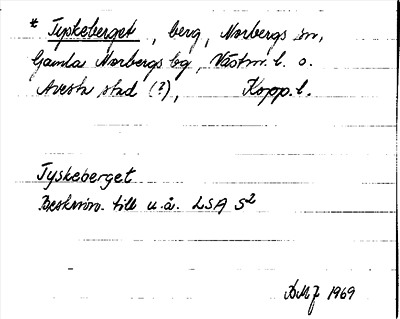 * Tyskeberget, berg, Norbergs sn,
Gamla Norbergs bg, Västm. l. o.
Avesta stad (?), Kopp. l.
Tyskeberget
Beskrivn. till u.å. LSA S2
AMJ 1969